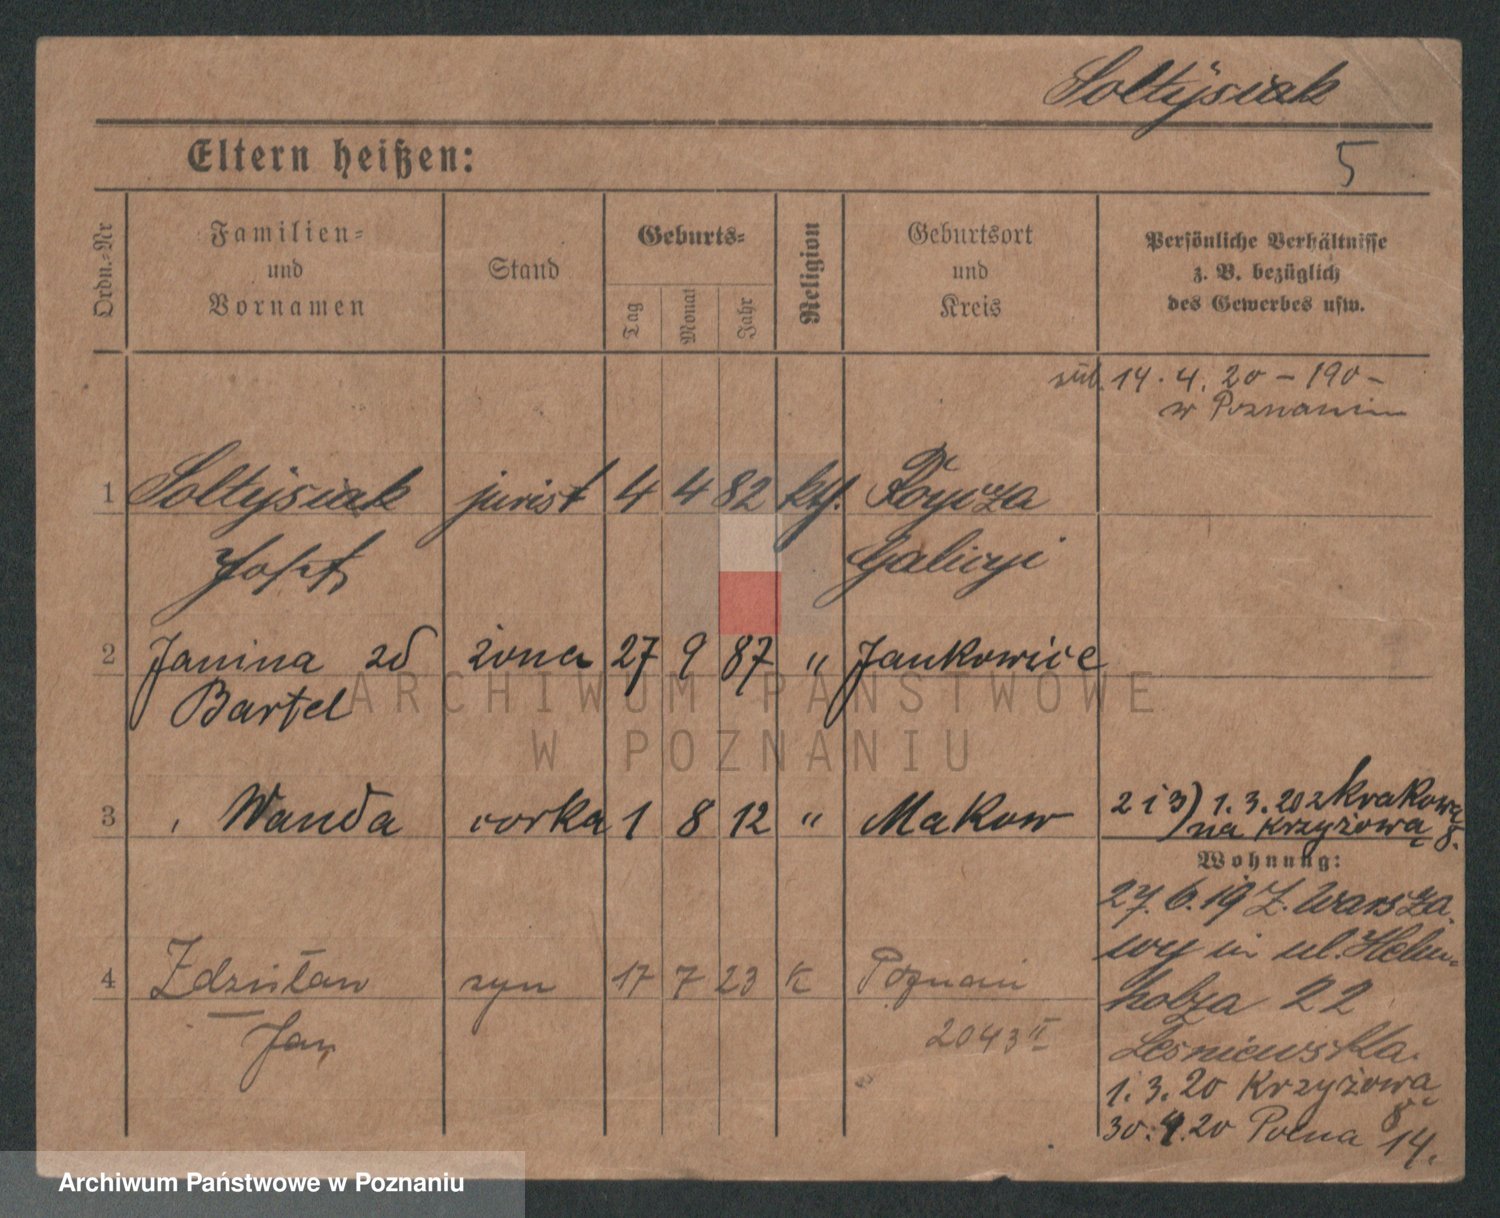 Sołtysiak
Eltern heißen:
5
Ordn.=Nr
Familien=
und
Vornamen
Stand
Geburts=
Tag
Monat
Jahr
Religion
Geburtsort
und
Kreis
Persönliche Verhältnisse
z. B. bezüglich
des Gewerbes usw.
14. 4. 20 – 190 –
w Poznaniu
1 Sołtysiak jurist 4 4 82 kth.
Józef Galicyi
2 Janina zd żona 27 9 87 " Jankowice
Bartel
3 Wanda corka 1 8 12 " Makow
2 i 3) 1. 3. 20 z Krakowa
na Krzyżową 8.
Wohnung:
27. 6. 19 z Warsza
wy ul. Helm=
holza 22
4 Zdzisław syn 17 7 23 K Poznań
Jan
2043 II
Leśniewska.
1. 3. 20 Krzyżowa
8
30. 4. 20 Polna 14.
ARCHIWUM PAŃSTWOWE
W POZNANIU
Archiwum Państwowe w Poznaniu